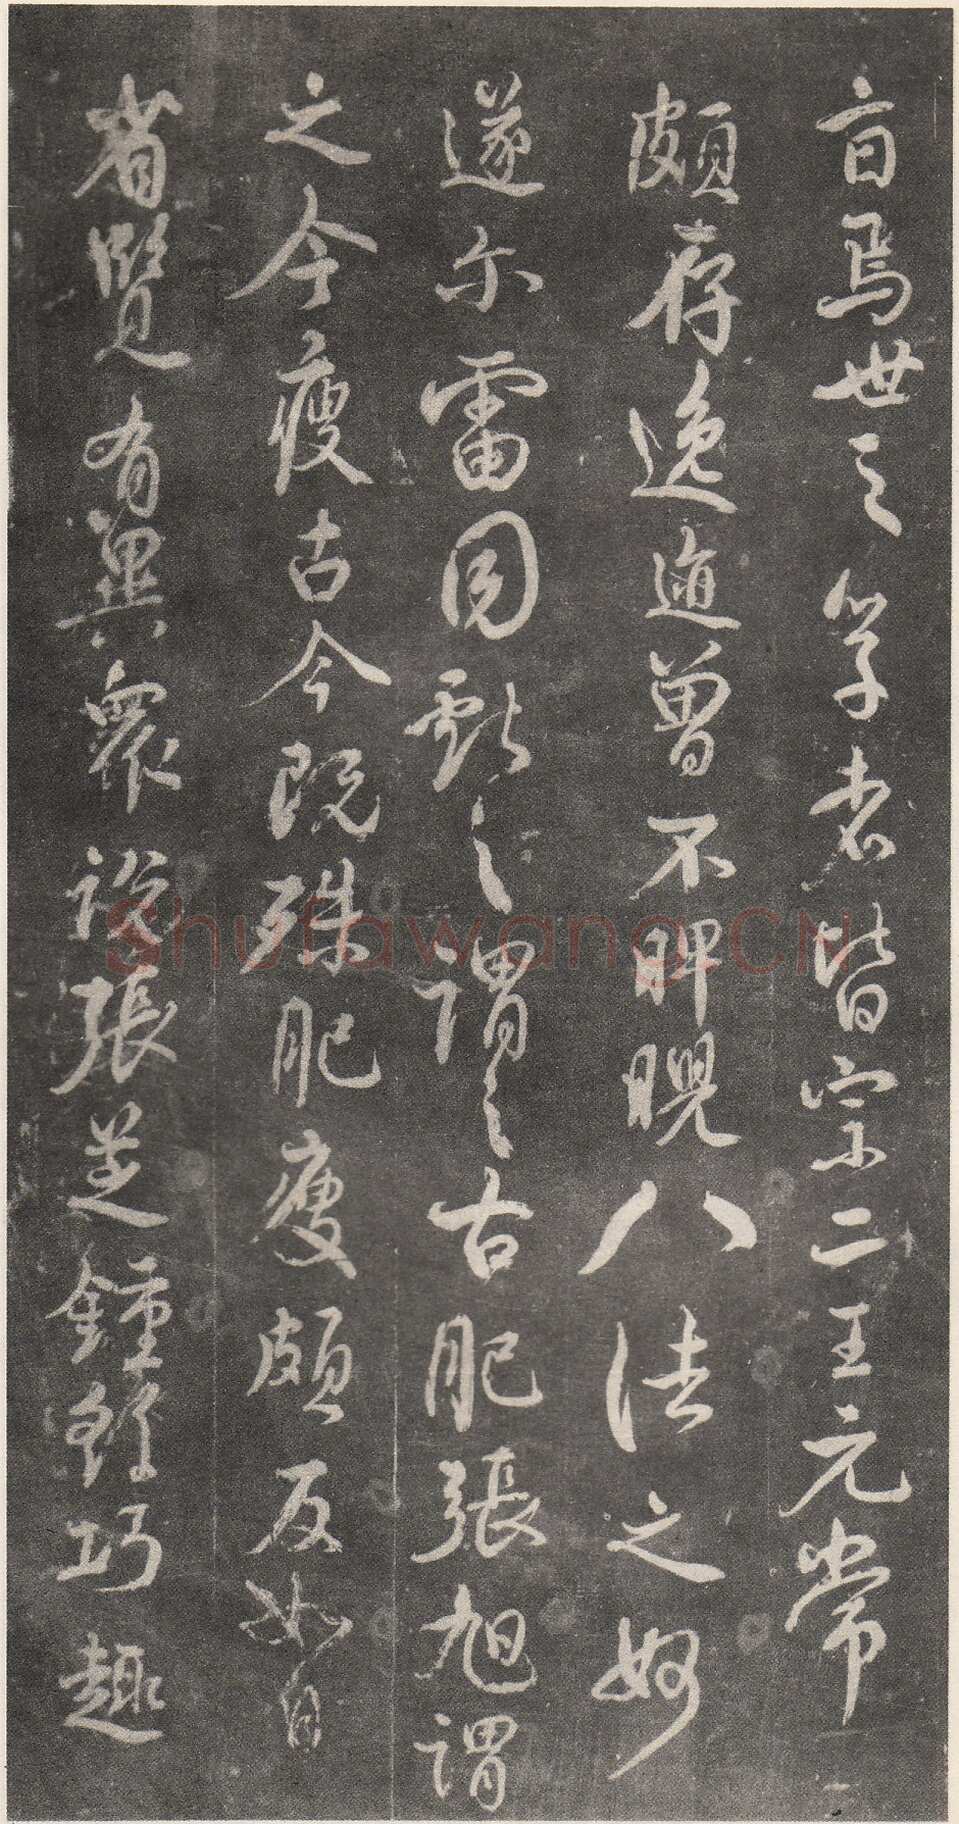 盲焉世之學者皆宗二王元常
頗存逸迹曾不睥睨八法之妙
遂尔雷同獻之謂之古肥張旭謂
之今瘦古今既殊肥瘦頗反如自
省覽有異衆說張芝鍾繇巧趣
Shufawang.CN